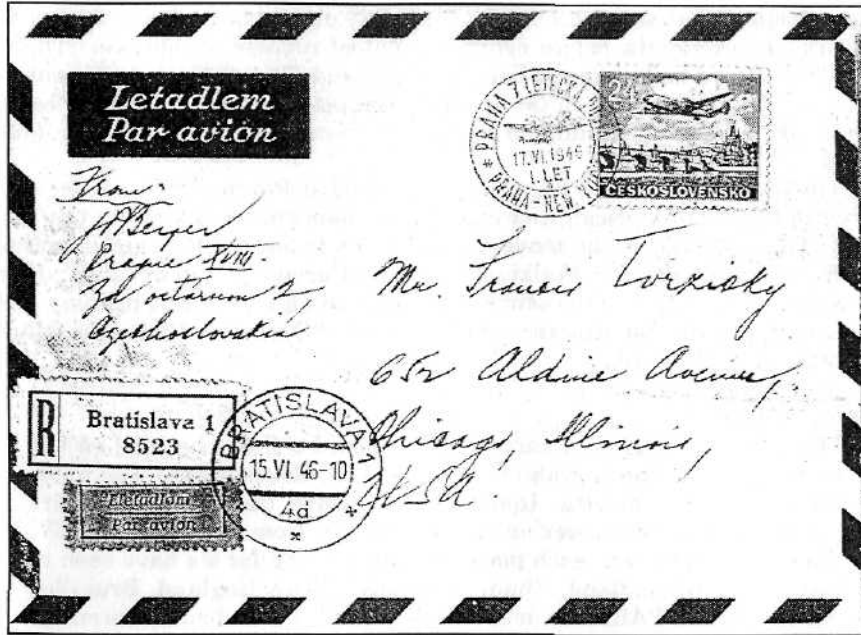 Letadlem
Par avion
PRAHA 7 LETECKÁ
17.VI.1946
1. LET
PRAHA-NEW
ČESKOSLOVENSKO
From:
Prague XVIII.
2
Czechoslovakia
Mr. Francis Tvrzsky
652 Aldine Avenue,
Chicago, Illinois,
USA.
R
Bratislava 1
8523
BRATISLAVA 1
15.VI.46-10
4d
Lietadlom
Par avion